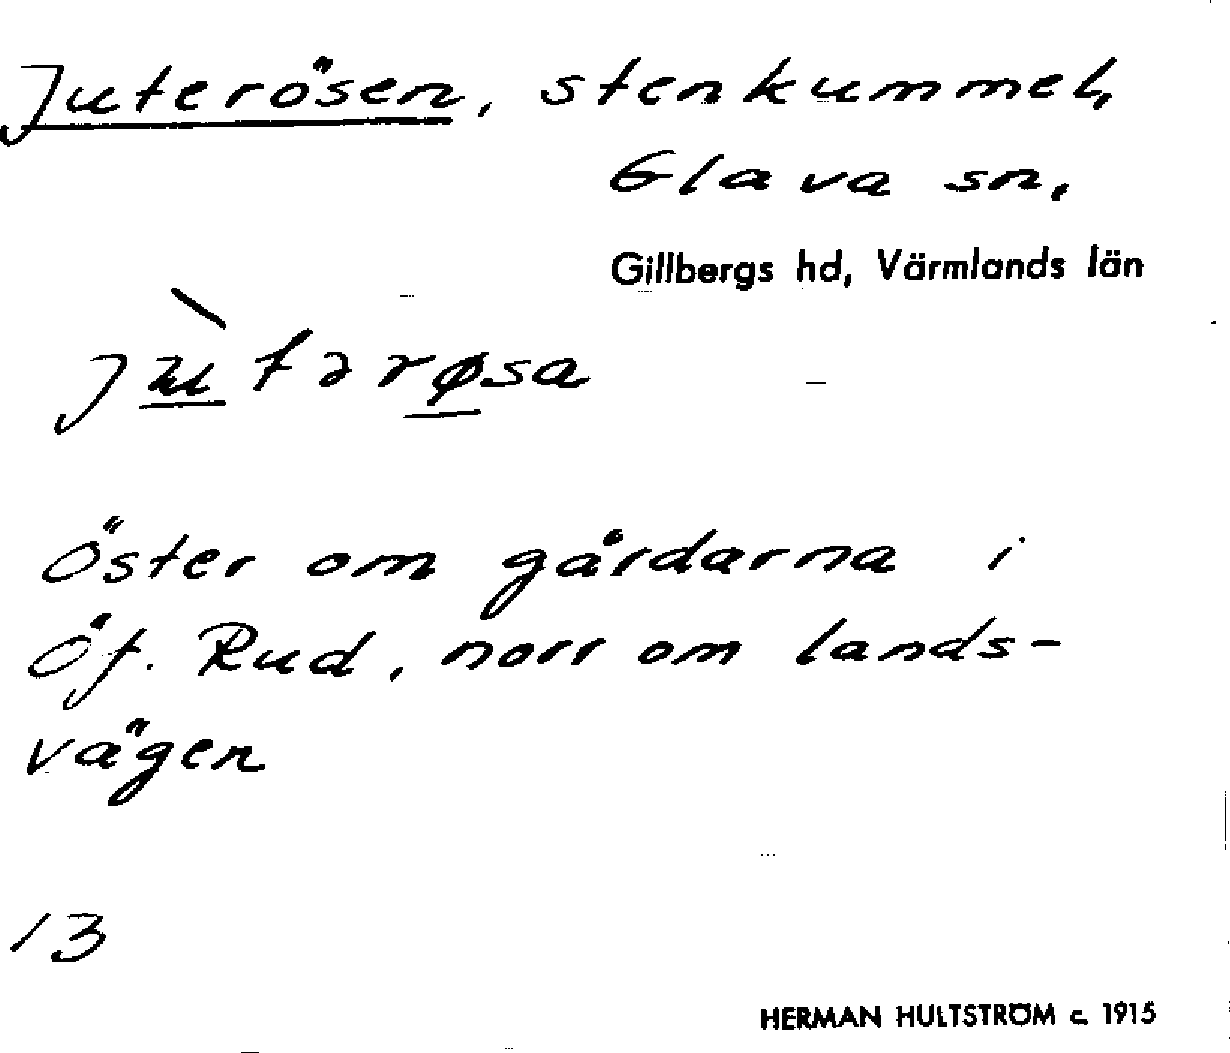 Juterösen, stenkummel,
Glava sn.
Gillbergs hd, Värmlands län
jùtərøsa
Öster om gårdarna i
Öf. Rud, norr om lands-
vägen
13
HERMAN HULTSTRÖM c. 1915